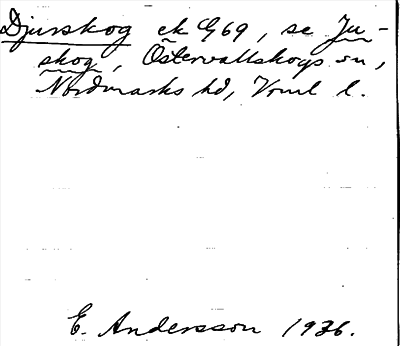 Djurskog ek G69, se Ju-
skog, Östervallskogs sn,
Nordmarks hd, Vrml l.
E. Andersson 1936.